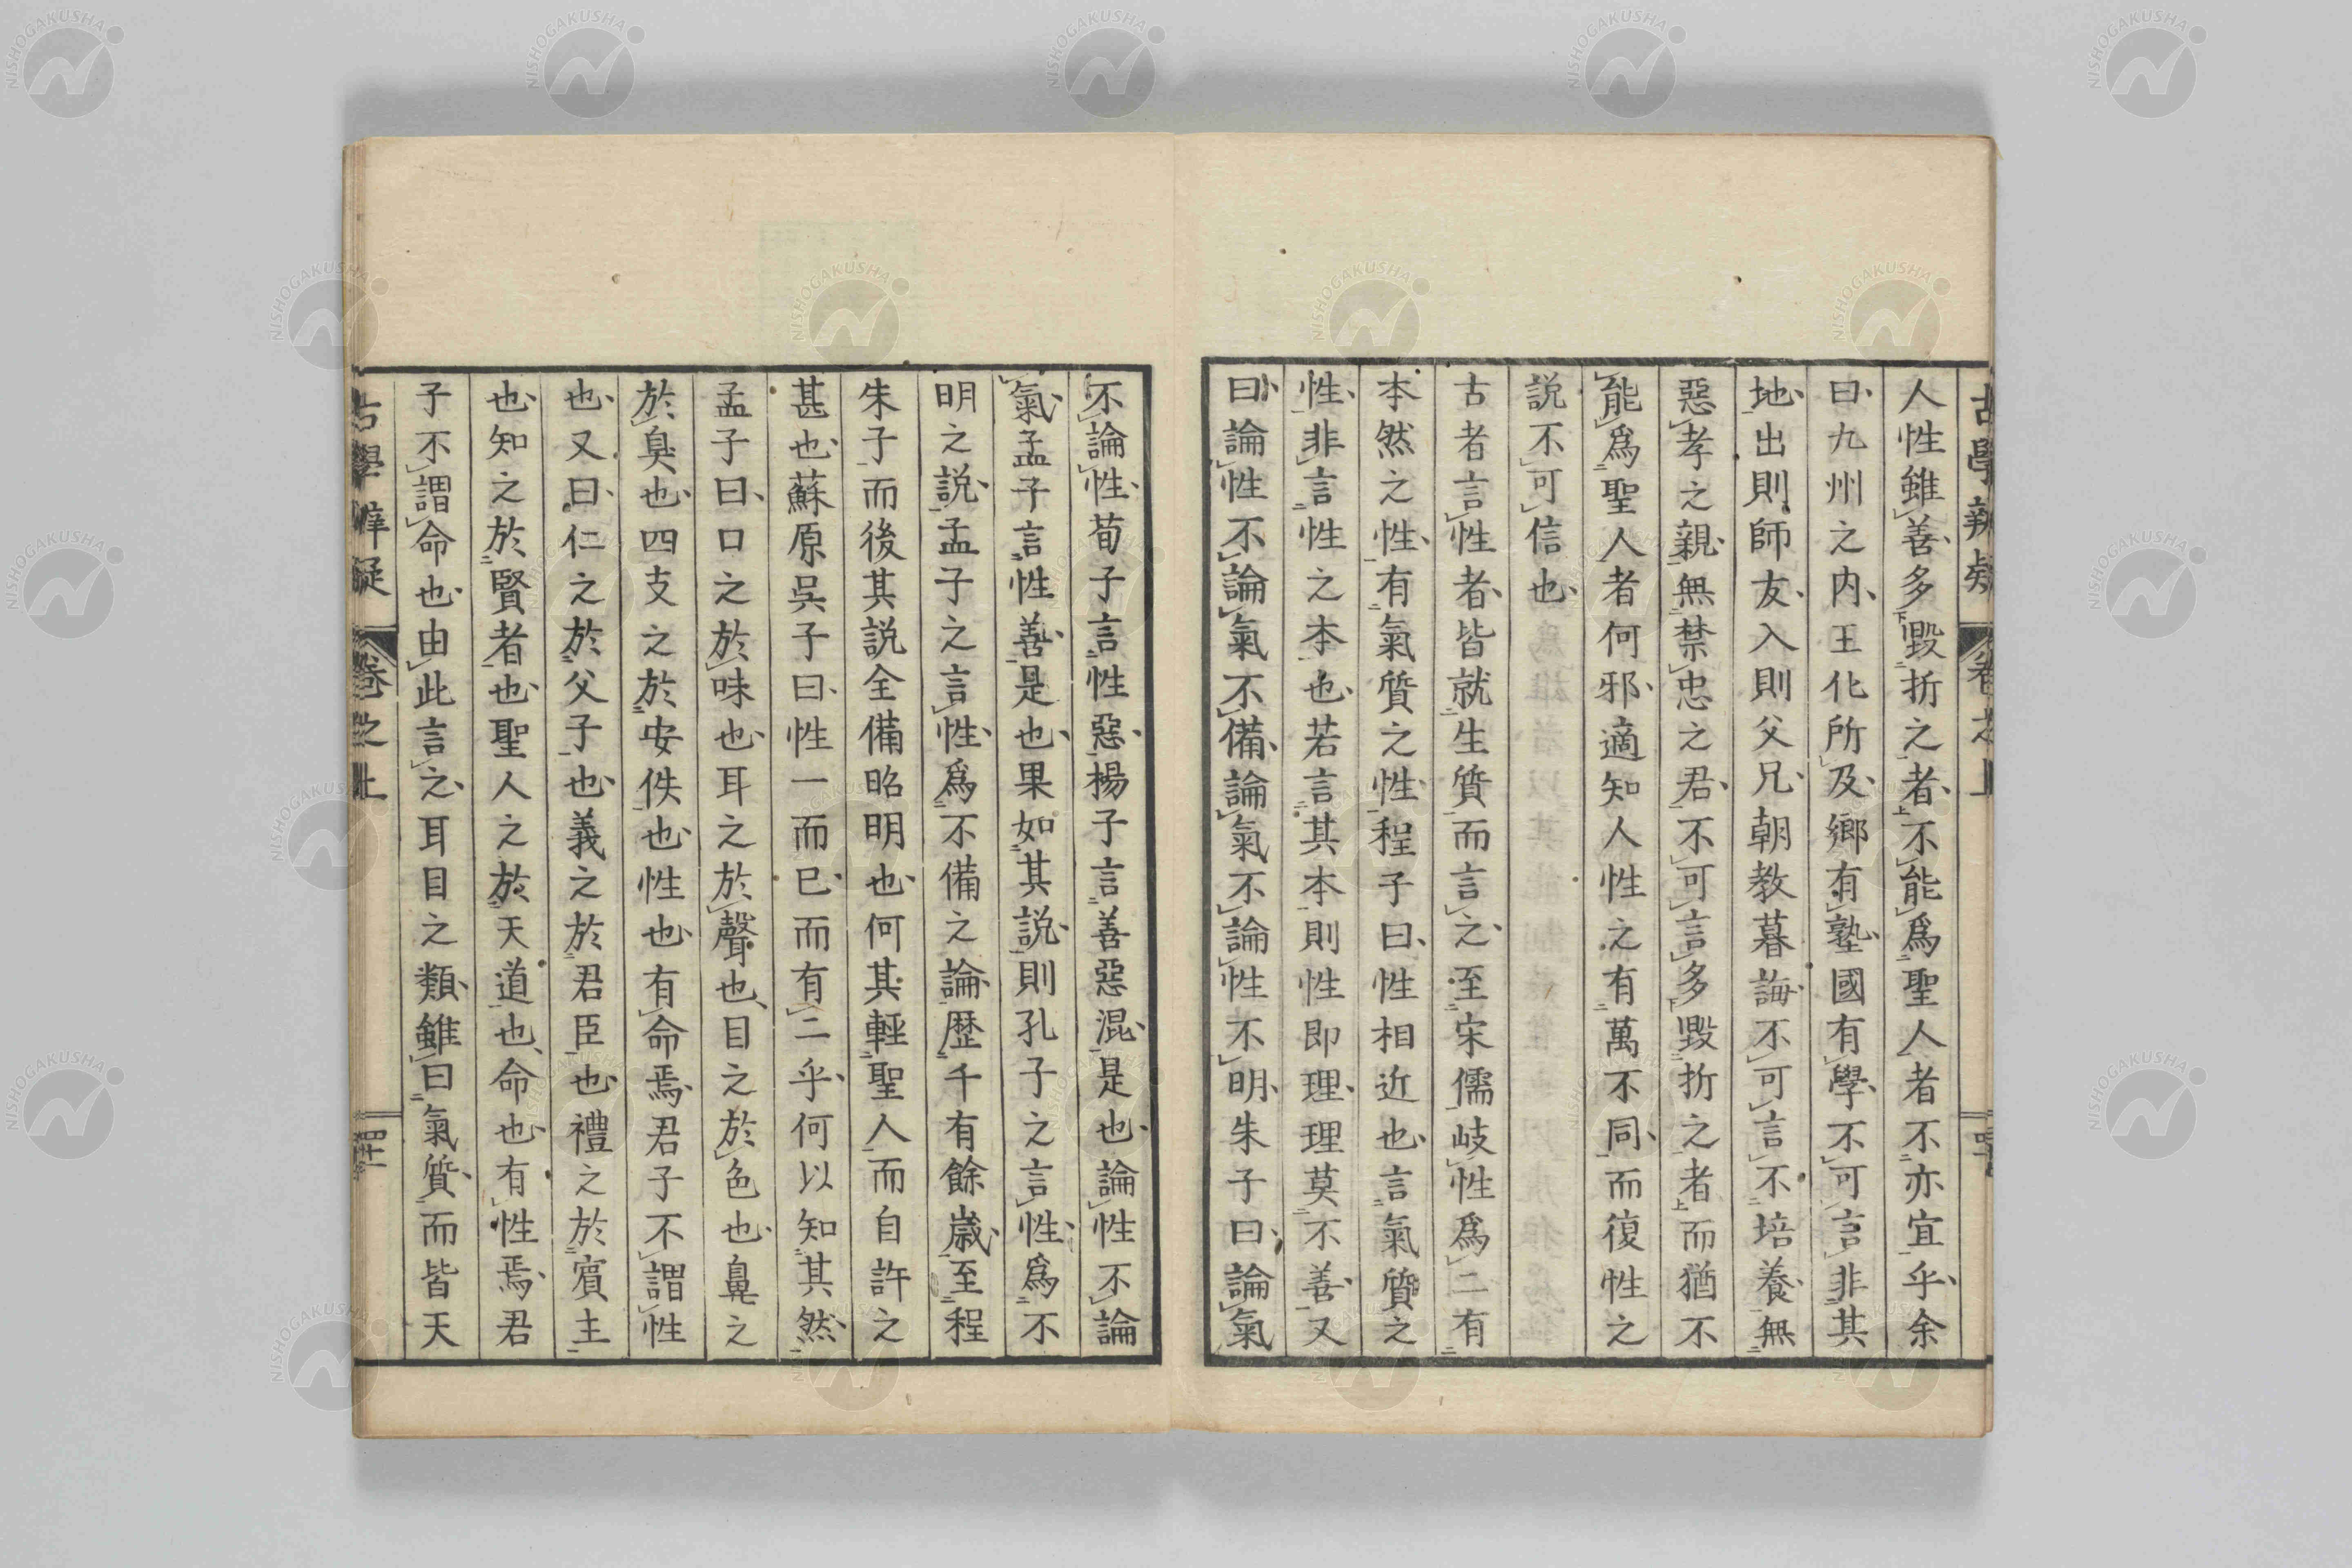 古學辨疑 卷之上
人性雖善多毀折之者不能爲聖人者不亦宜乎余
曰九州之内王化所及鄉有塾國有學不可言非其
地出則師友入則父兄朝教暮誨不可言不培養無
惡孝之親無禁忠之君不可言多毀折之者而猶不
能爲聖人者何邪適知人性之有萬不同而復性之
説不可信也
古者言性者皆就生質而言之至宋儒岐性爲二有
本然之性有氣質之性程子曰性相近也言氣質之
性非言性之本也若言其本則性即理理莫不善又
曰論性不論氣不備論氣不論性不明朱子曰論氣
不論性荀子言性惡楊子言善惡混是也論性不論
氣孟子言性善是也果如其説則孔子之言性爲不
明之説孟子之言性爲不備之論歴千有餘歳至程
朱子而後其説全備昭明也何其輕聖人而自許之
甚也蘇原吳子曰性一而已而有二乎何以知其然
孟子曰口之於味也耳之於聲也目之於色也鼻之
於臭也四支之於安佚也性也有命焉君子不謂性
也又曰仁之於父子也義之於君臣也禮之於賓主
也知之於賢者也聖人之於天道也命也有性焉君
子不謂命也由此言之耳目之類雖曰氣質而皆天
古學辨疑 卷之上
NISHOGAKUSHA